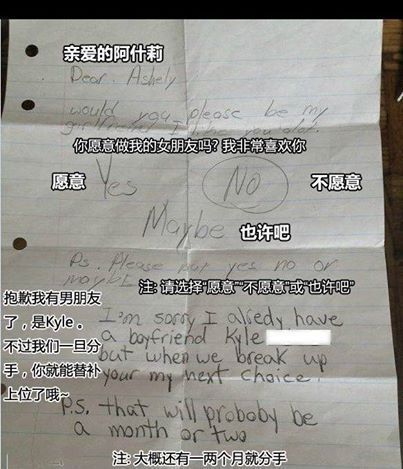 亲爱的阿什莉
Dear. Ashely
would you please be my
girlfriend I like you alot.
你愿意做我的女朋友吗?我非常喜欢你
愿意 Yes NO 不愿意
Maybe 也许吧
Ps. Please put yes no or
maybe
注: 请选择"愿意""不愿意"或"也许吧"
抱歉我有男朋友
了，是Kyle。
不过我们一旦分
手，你就能替补
上位了哦~
I'm sorry I alredy have
a boyfriend Kyle
but when we break up
your my next choice.
P.S. that will proboby be
a month or two
注: 大概还有一两个月就分手